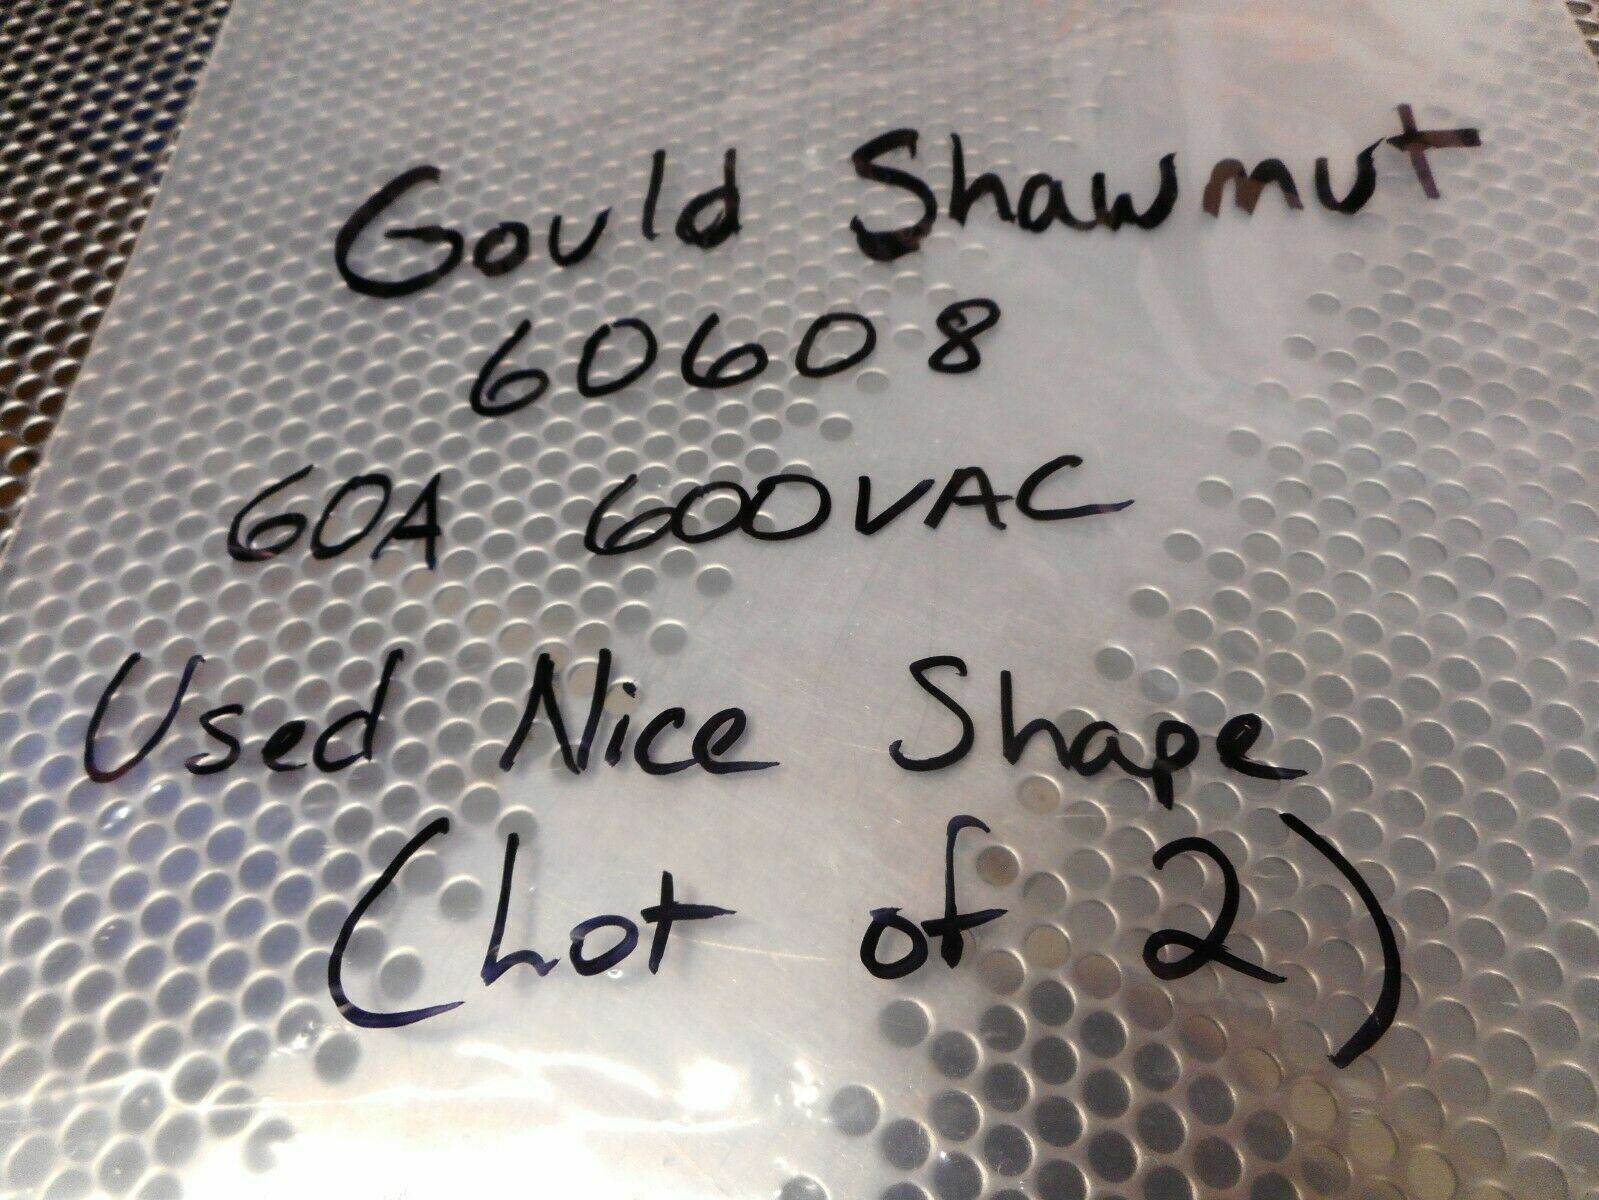 Gould Shawmut
60608
60A 600VAC
Used Nice Shape
(Lot of 2)